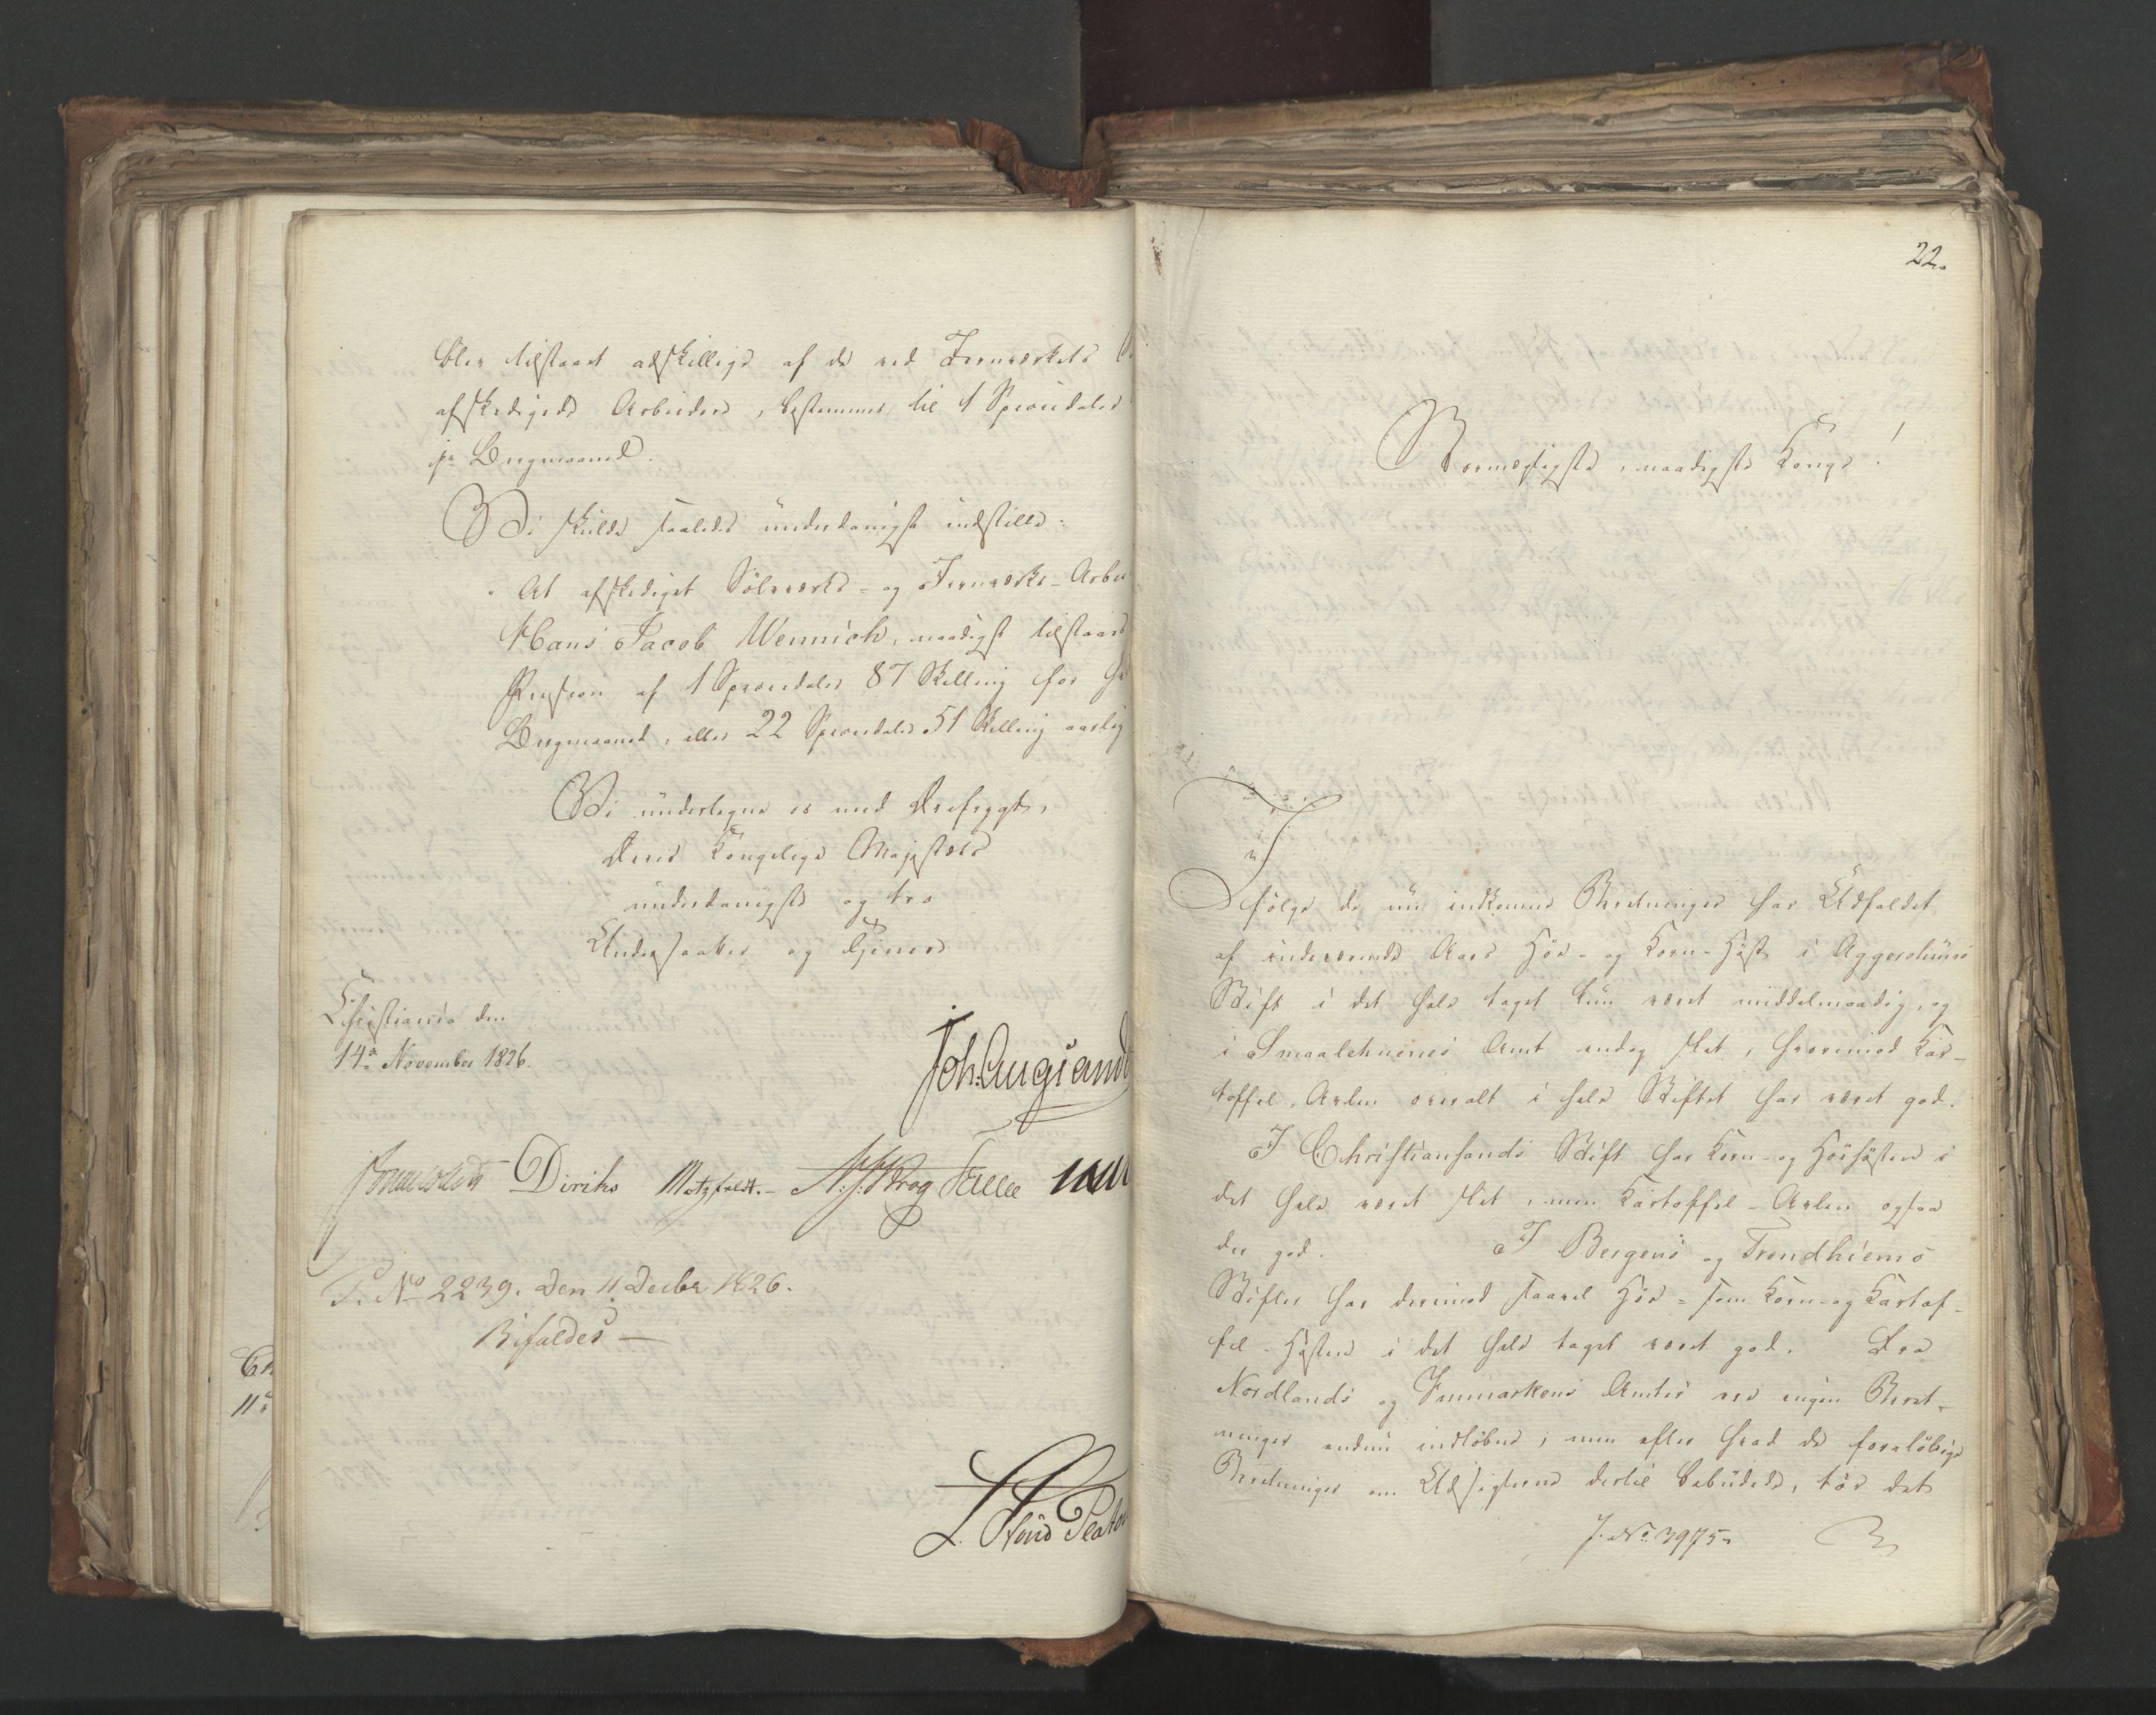 blev tilstaaet adskillige af de ved Jernværkets
afskedigede Arbeidere, bestemmes til 1 Speciedaler
pr Bergmaaned.
Vi skulde saaledes underdanigst indstille:
At afskediget Sölvværks- og Jernværks-Arbei
Hans Jacob Wennich, naadigst tilstaaes
Pension af 1 Speciedaler 87 Skilling for hv
Bergmaaned, eller 22 Speciedaler 51 Skilling aarlig
Vi undertegne os med Ærefrygt,
Deres Kongelige Majestæts
underdanigste og tro
Undersaatter og Tjenere
Christiania den
14de November 1826.
Joh: Aug: Sand
Sommerhielm Diriks Motzfeldt. N. J. Krog Fasting
P. No 2239. Den 11 Decbr 1826.
Bifaldes
L. Stoud Platou
22.
Stormægtigste, naadigste Konge!
I
fölge de nu indkomne Beretninger har Udfaldet
af indeværende Aars Höe- og Korn-Höst i Aggershuus
Stift i det Hele taget kun været middelmaadig, og
i Smaalehnenes Amt endog slet, hvorimod Kar-
toffel-Avlen overalt i hele Stiftet har været god.
I Christiansands Stift har Korn- og Höehösten i
det Hele været slet, men Kartoffel-Avlen ogsaa
der god. I Bergens og Trondhiems
Stifter har derimod saavel Höe- som Korn- og Kartof-
fel-Hösten i det Hele taget været god. Fra
Nordlands og Finmarkens Amter ere ingen Beret-
ninger endnu indlöbne; men efter hvad de forelöbige
Beretninger om Udsigterne dertil bebudede, tör det
J. No 3975